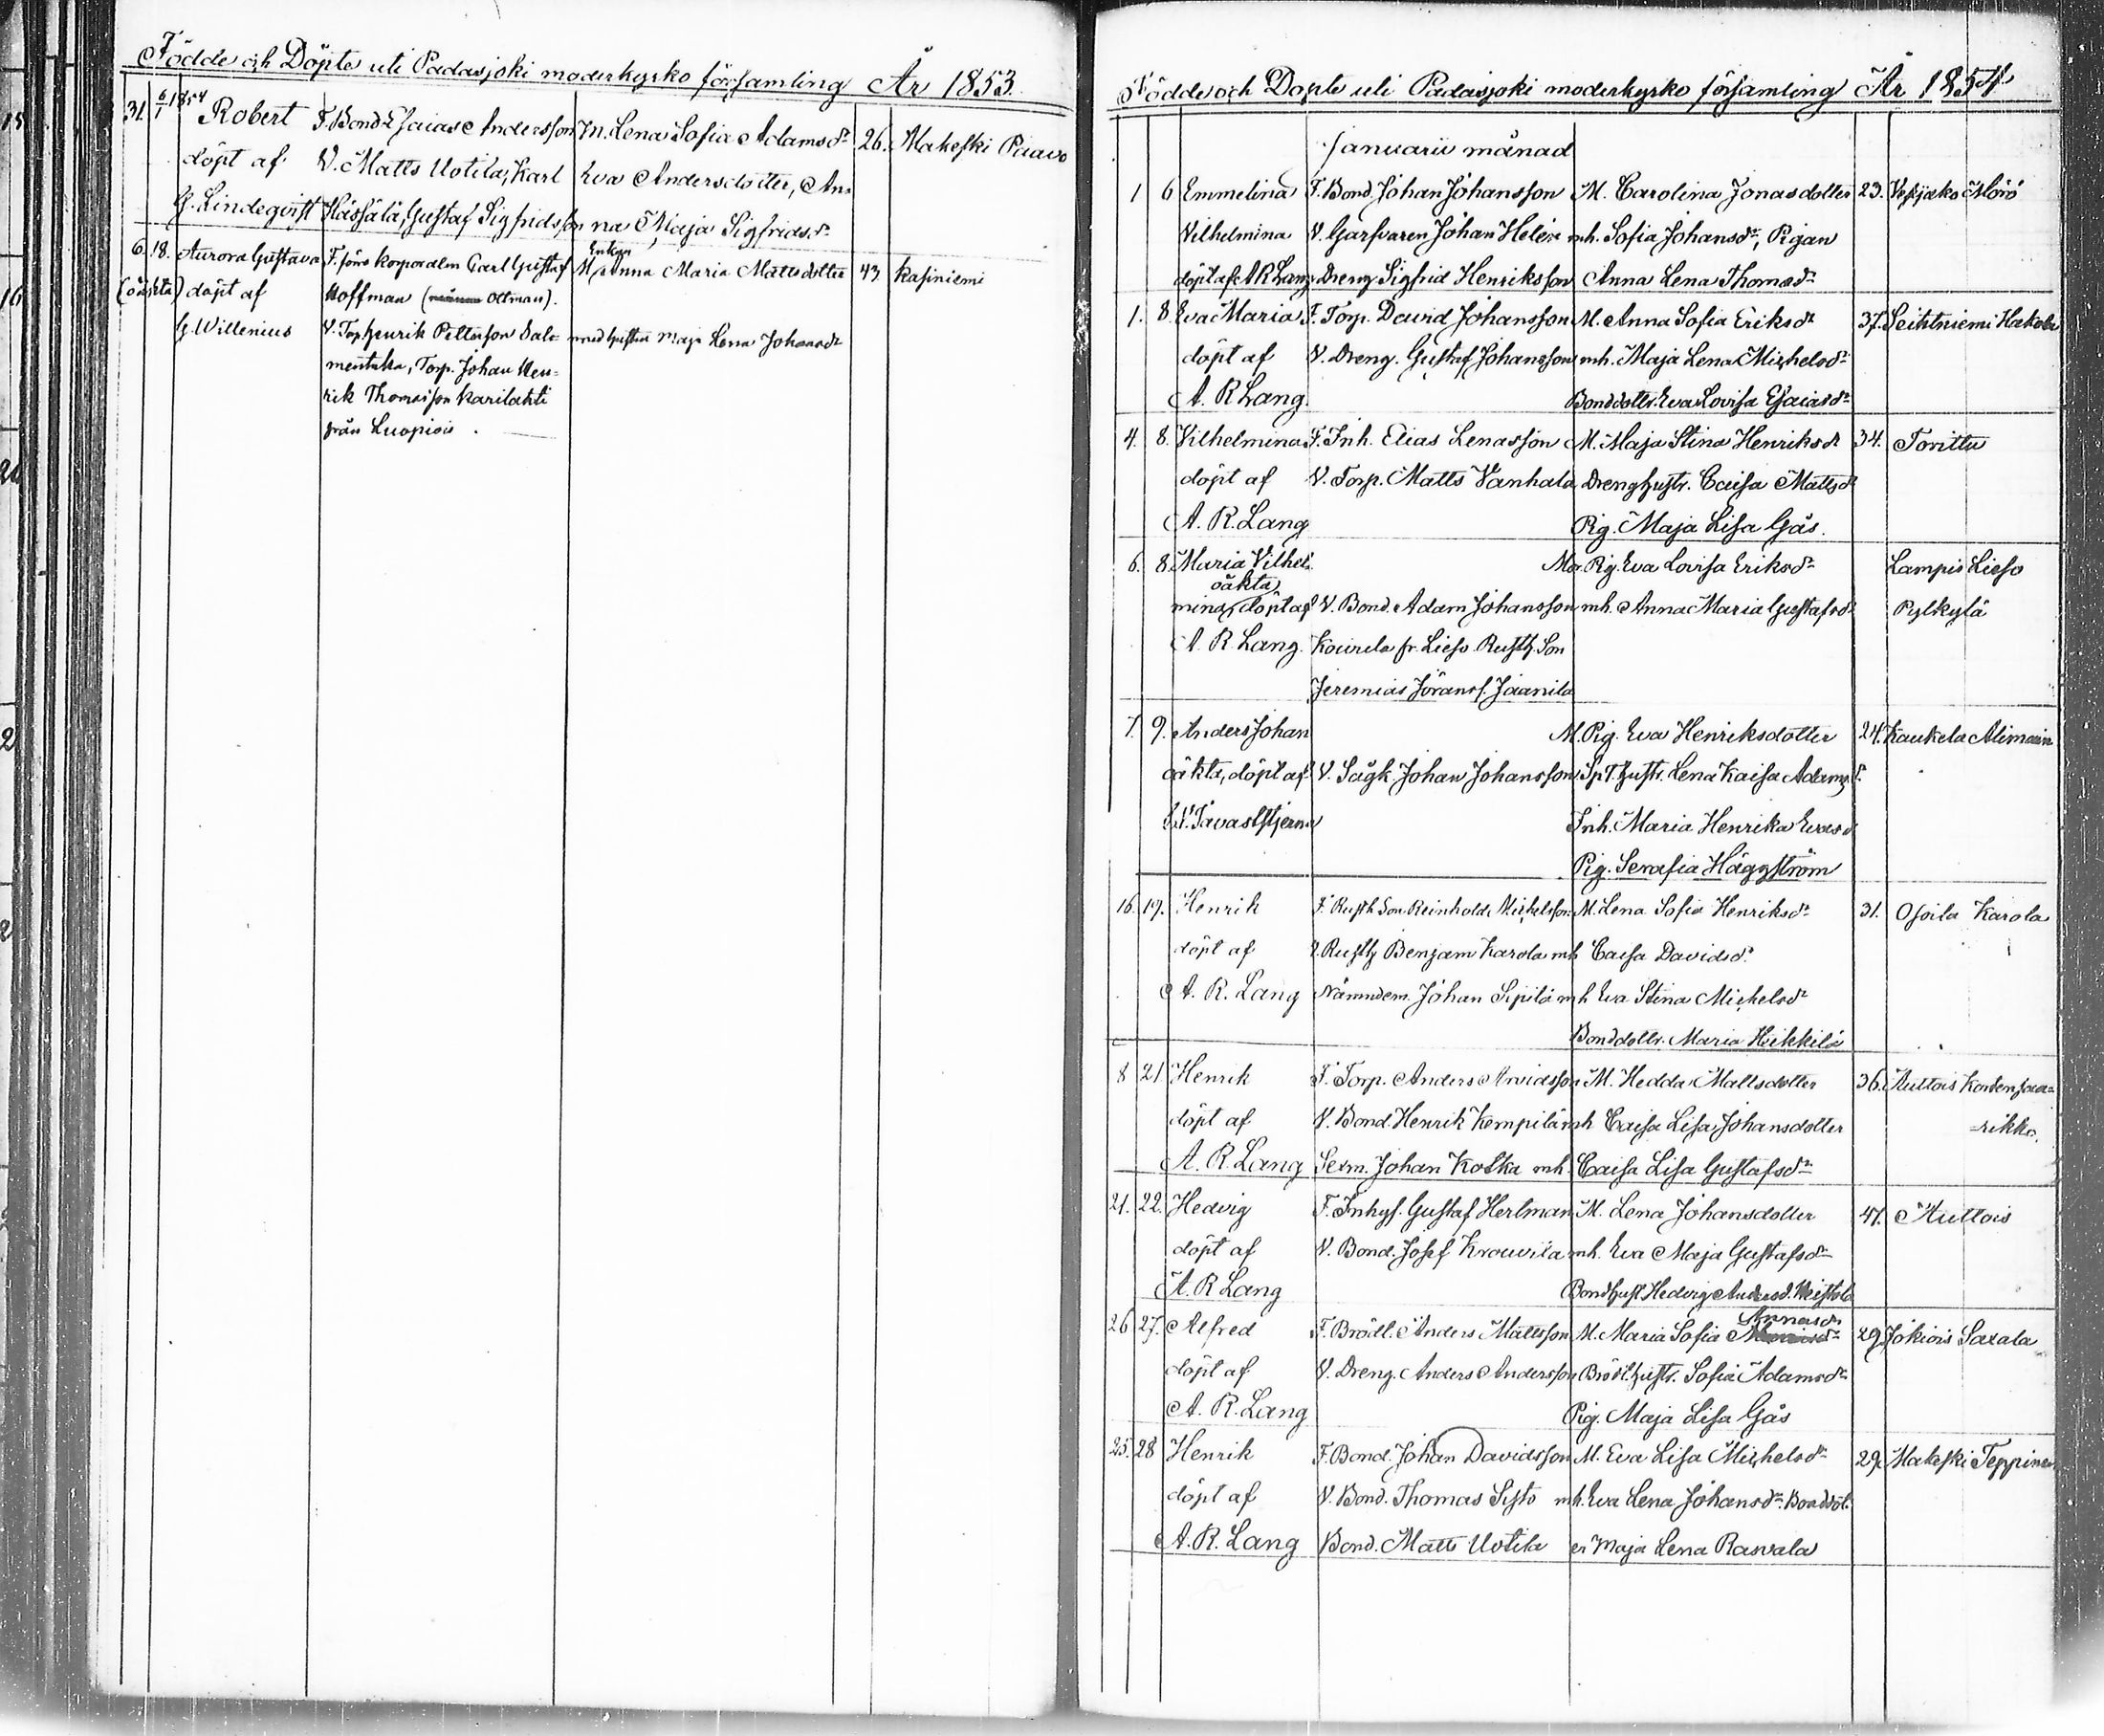 Födde och Döpte uti Padasjoki moderkyrko församling År 1853.
31. 6/1 1854 Robert F. Bond. Esaias Andersson M. Lena Sofia Adamsdr 26. Makeski Paavo
döpt af V. Matts Uotila, Karl Eva Andersdotter, An-
G. Lindeqvist Hässälä, Gustaf Sigfridsson na Maja Sigfridsdr
6. 18. Aurora Gustava F. förre korporalen Carl Gustaf M. Enkan Anna Maria Mattsdotter 43 Kasiniemi
(oäkta) döpt af Hoffman ( Oltman).
G. Willenius V. Torp. Henrik Pettersson Sal- med hustru Maja Lena Johansdr
mentaka, Torp. Johan Hen-
rik Thomasson Karilahti
från Luopiois.
Födde och Döpte uti Padasjoki moderkyrko församling År 1854
Januarii månad
1 6 Emmelina F. Bond. Johan Johansson M. Carolina Jonasdotter 23. Vesijako Mörö
Vilhelmina V. Garfvaren Johan Helén mh. Sofia Johansdr, Pigan
döpt af A R Lang. Dreng Sigfrid Henriksson Anna Lena Thomasdr
1. 8. Eva Maria F. Torp. David Johansson M. Anna Sofia Eriksdr 37. Seitniemi Hakola
döpt af V. Dreng. Gustaf Johansson mh. Maja Lena Michelsdr
A. R Lang. Bonddottr. Eva Lovisa Esaiasdr
4. 8. Vilhelmina F. Inh. Elias Lenasson M. Maja Stina Henriksdr 34. Torittu
döpt af V. Torp. Matts Vanhala, Drenghustr. Caisa Mattsdr
A. R. Lang Pig. Maja Lisa Gås.
6. 8. Maria Vilhel- Mor. Pig. Eva Lovisa Eriksdr Lampis Lieso
oäkta
mina, döpt af V. Bond. Adam Johansson mh. Anna Maria Gustafsdr Pylkylä
A. R Lang. Kourila fr. Lieso Rusth Son
Jeremias Göransf. Jaanila
7. 9. Anders Johan M. Pig. Eva Henriksdotter 24. Kaukela Alimain
oäkta, döpt af V. Sågk. Johan Johansson, Sp. T. hustr. Lena Kaisa Adamsd.
Tavaststjerna Inh. Maria Henrika Evasd
Pig. Serafia Häggström
16. 19. Henrik F. Rusth Son. Reinhold Michelsson M. Lena Sofia Henriksdr 31. Osoila Karola
döpt af V. Rusth Benjam Karola mh Caisa Davidsdr
A. R. Lang Nämndem. Johan Sipilä mh Eva Stina Michelsdr
Bonddottr. Maria Heikkilä
8 21 Henrik F. Torp. Anders Arvidsson M. Hedda Mattsdotter 36. Auttois
döpt af V. Bond. Henrik Kempilä mh Caisa Lisa Johansdotter rikko.
A. R. Lang Sexm. Johan Koska mh. Caisa Lisa Gustafsdr
21. 22. Hedvig F. Inhys. Gustaf Hertman M. Lena Johansdotter 41. Auttois
döpt af V. Bond. Josef Krouvila mh. Eva Maja Gustafsdr
A. R Lang Bondhust Hedvig Andersd. Meistola
26 27. Alfred F. Brödl. Anders Mattsson M. Maria Sofia Annasdr 29. Jokiois Saxala
döpt af V. Dreng. Anders Andersson Brödl. hustr. Sofia Adamsdr
A. R. Lang Pig. Maja Lisa Gås
25. 28 Henrik F. Bond. Johan Davidsson M. Eva Lisa Michelsdr 29. Makeski Teppinen
döpt af V. Bond. Thomas Sysö mh. Eva Lena Johansdr. Bonddöt.
A. R. Lang Bond. Matts Uotila er Maja Lena Rasvala